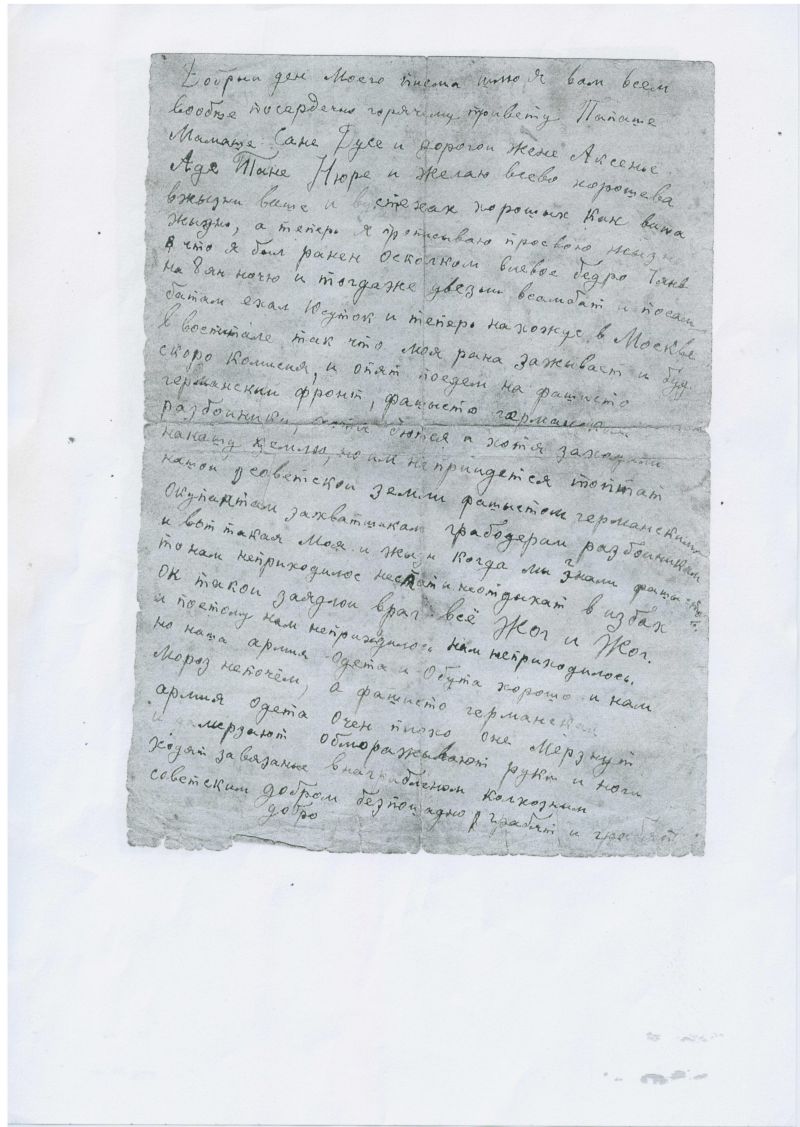 Добрыи ден Моего писма шлю я вам всем
вообще посердечно горячему привету Папаше
Мамаше Сане Дусе и дорогои жене Аксенье
Аде Тане Нюре и желаю всево хорошева
вжызни ваше и вуспехах хорошых Как ваша
жызнь, а теперь я прописываю просвою жызн
что я был ранен осколком влевое бедро 7янв
на 8 ян ночю и тогдаже увезли всамбат и посам
батам ехал суток и теперь нахожус в Москве
в воспитале так что моя рана заживает и буд
скоро комисия, и опят поедем на фашисто
германскии фронт, фашысто германскии
разбоиники, бютса и хотя захватит
нанашу землю, но им непридется топтат
нашои советскои земли фашыстом германским
Окупантам захватшикам грабодерам разбоиникам
и вот такая Моя и жызн когда мы гнали фашыстов
то нам неприходилос неспат и неотдыхат в избах
ОН такои заядлои враг всё Жог и Жог.
и поетому нам неприходилось нам неприходилось.
но наша армия Одета и Обута хорошо и нам
Мороз непочём, а фашисто германская
армия Одета Очен плохо Оне Мерзнут
и замерзают Обмораживают руки и ноги
ходят завязаные внаграбленом колхозным
советским добром безпощадно грабят и грабят
добро